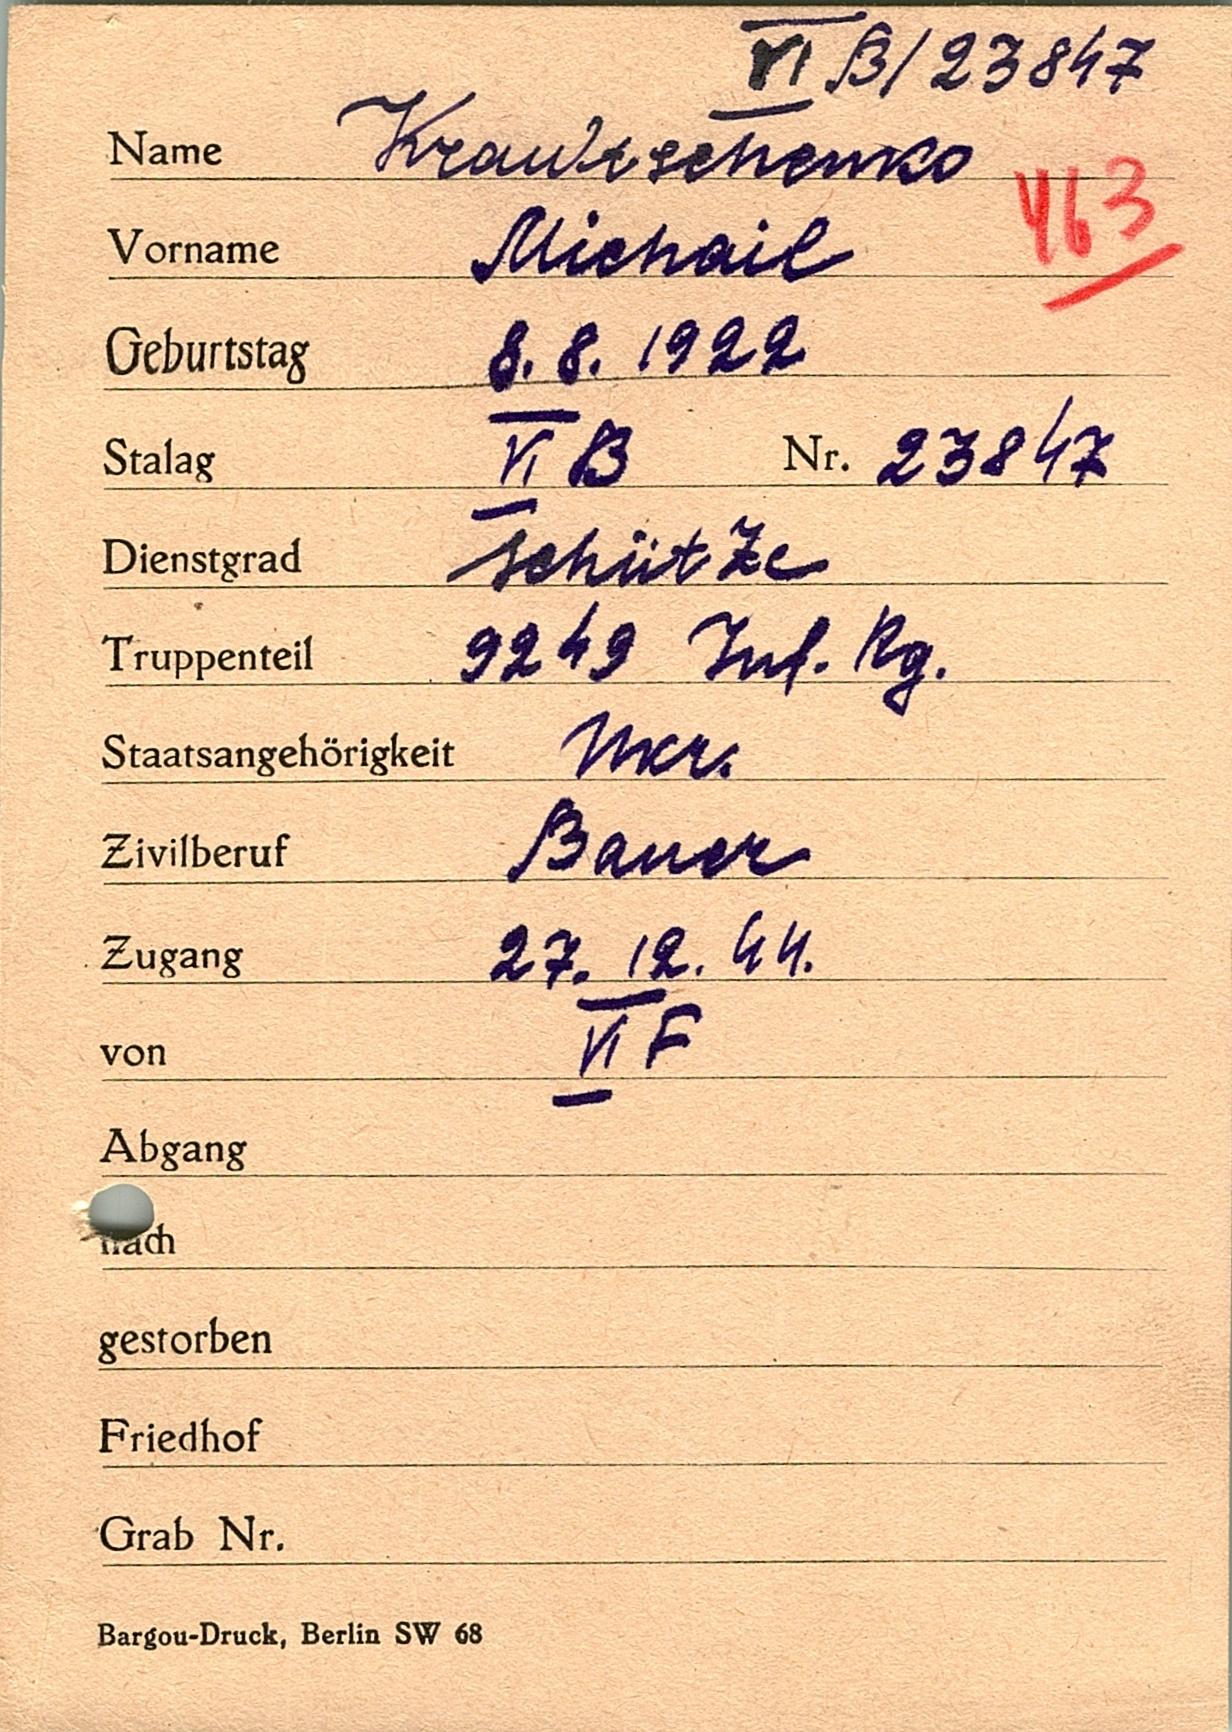 VI B/23847
Name Krawtschenko
463
Vorname Michail
Geburtstag 8.8.1922
Stalag VI B Nr. 23847
Dienstgrad Schütze
Truppenteil 9249 Inf. Rg.
Staatsangehörigkeit Ukr.
Zivilberuf Bauer
Zugang 27.12.44.
von VI F
Abgang
nach
gestorben
Friedhof
Grab Nr.
Bargou-Druck, Berlin SW 68